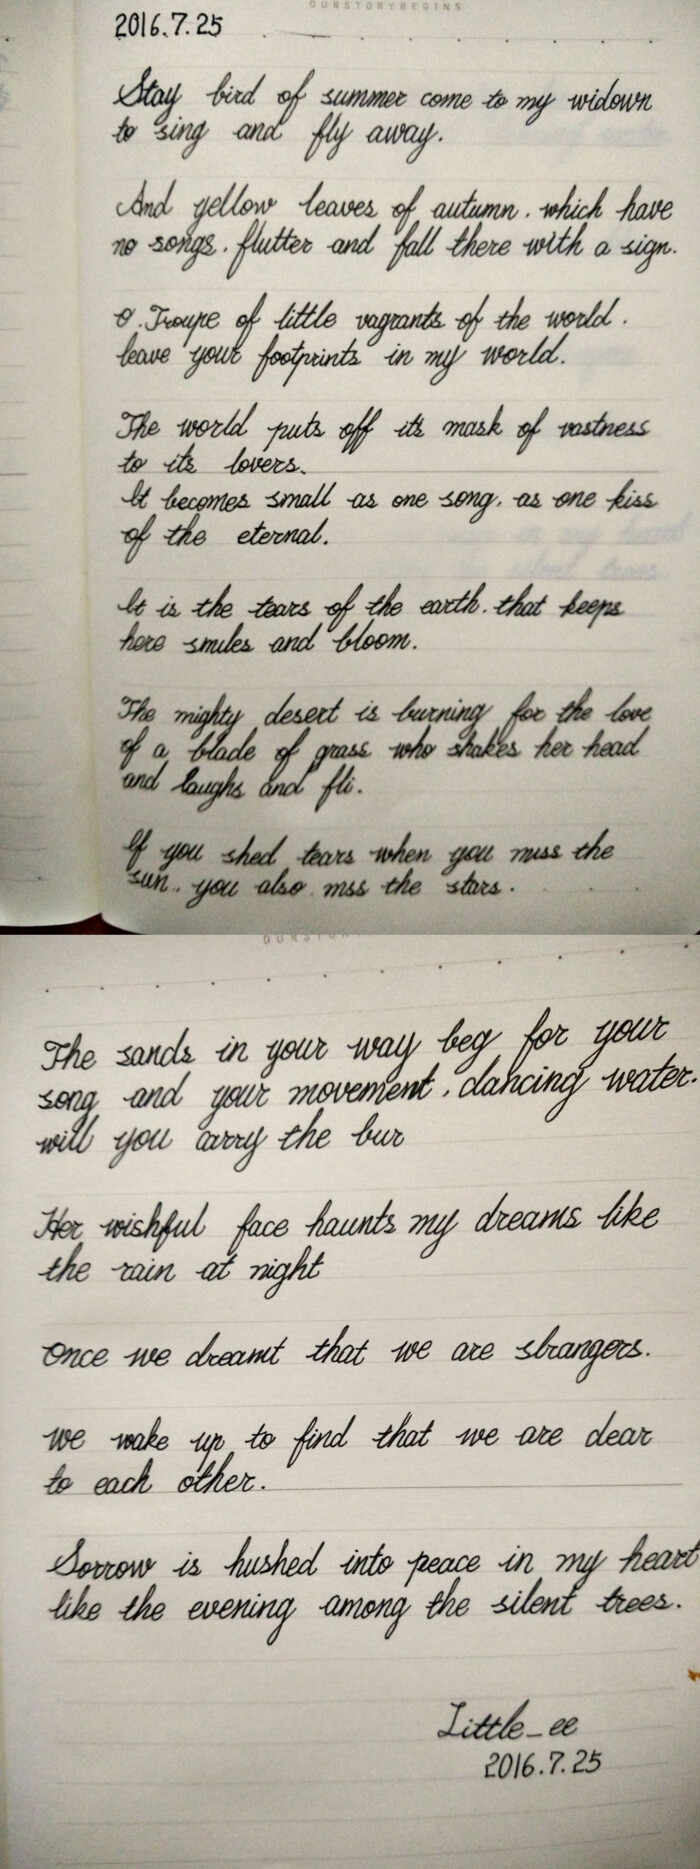 OURSTORYBEGINS
2016.7.25
Stay bird of summer come to my widown
to sing and fly away.
And yellow leaves of autumn. which have
no songs. flutter and fall there with a sign.
O. Troupe of little vagrants of the world.
leave your footprints in my world.
The world puts off its mask of vastness
to its lovers.
It becomes small as one song. as one kiss
of the eternal.
It is the tears of the earth. that keeps
here smiles and bloom.
The mighty desert is burning for the love
of a blade of grass who shakes her head
and laughs and fli.
If you shed tears when you miss the
sun. you also mss the stars.
The sands in your way beg for your
song and your movement. dancing water.
will you carry the bur
Her wishful face haunts my dreams like
the rain at night
Once we dreamt that we are strangers.
we wake up to find that we are dear
to each other.
Sorrow is hushed into peace in my heart
like the evening among the silent trees.
Little_ee
2016.7.25